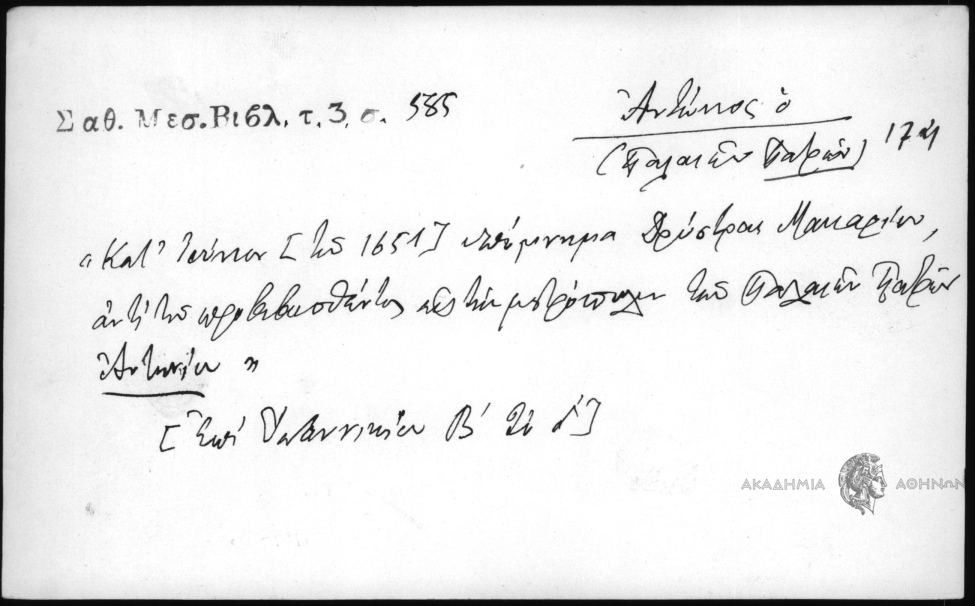 Σαθ. Μεσ. Βιβλ. τ. 3, σ. 585
Ἀντώνιος ὁ
(Παλαιῶν Πατρῶν) 17
"Κατ' Ἰούνιον [τοῦ 1651] ὑπόμνημα Δρύστρας Μακαρίου,
ἀντὶ τοῦ προβιβασθέντος εἰς τὴν μητρόπολιν τῶν Παλαιῶν Πατρῶν
Ἀντωνίου"
[Ἐπὶ Ἰωαννικίου Β' τὸ]
ΑΚΑΔΗΜΙΑ ΑΘΗΝΩΝ